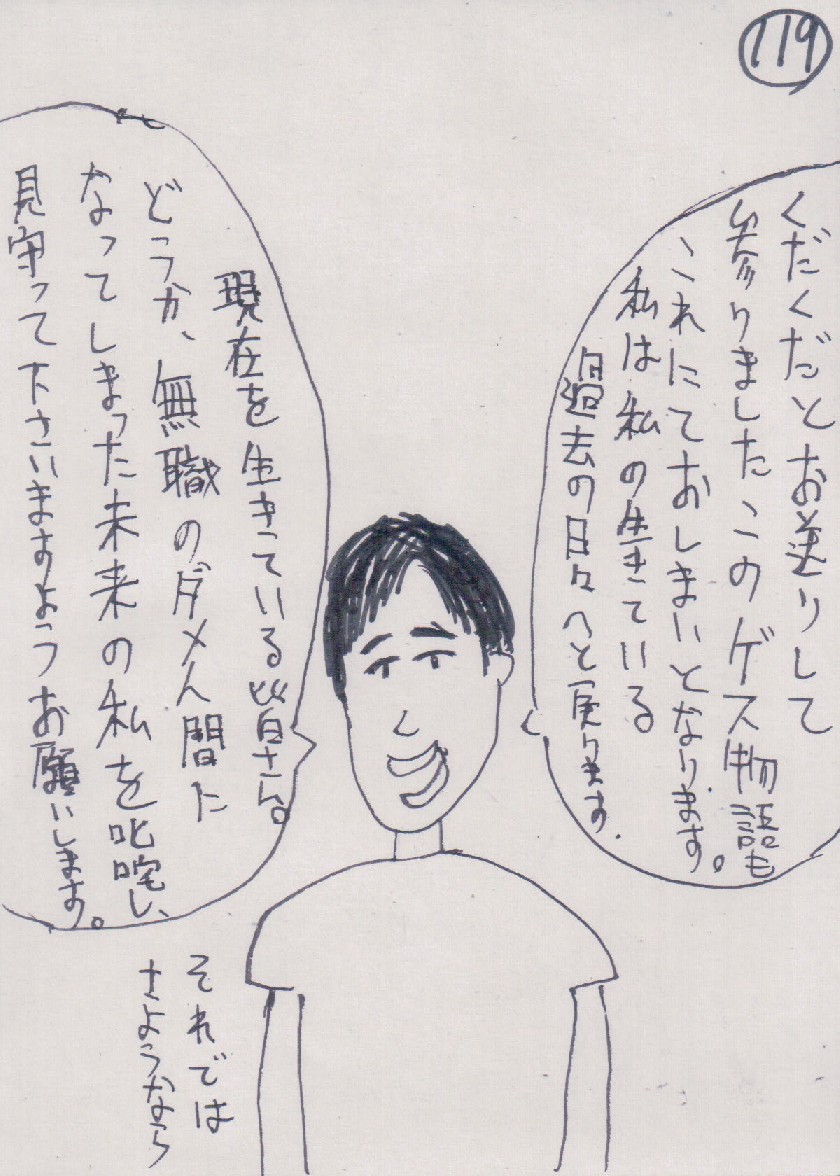 119
くだくだとお送りして
参りましたこのゲス物語も
これにておしまいとなります。
私は私の生きている
過去の日々へと戻ります。
現在を生きている皆さん。
どうか、無職のダメ人間に
なってしまった未来の私を叱咤し、
見守って下さいますようお願いします。
それでは
さようなら